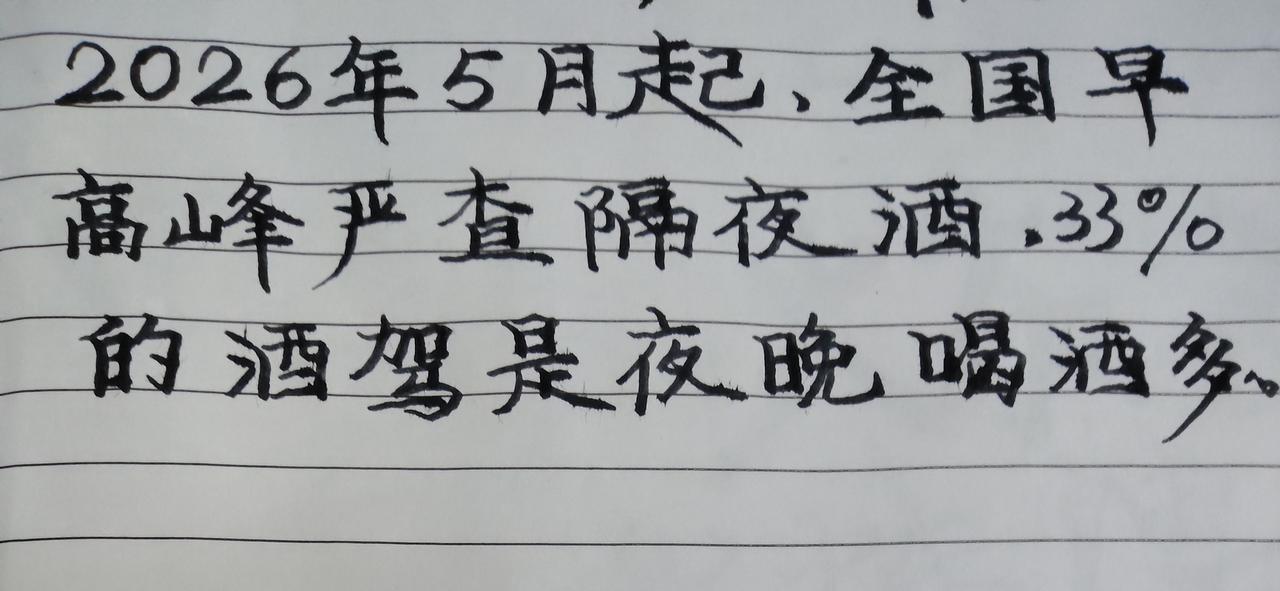 2026年5月起、全国早
高峰严查隔夜酒.33%
的酒驾是夜晚喝酒多。